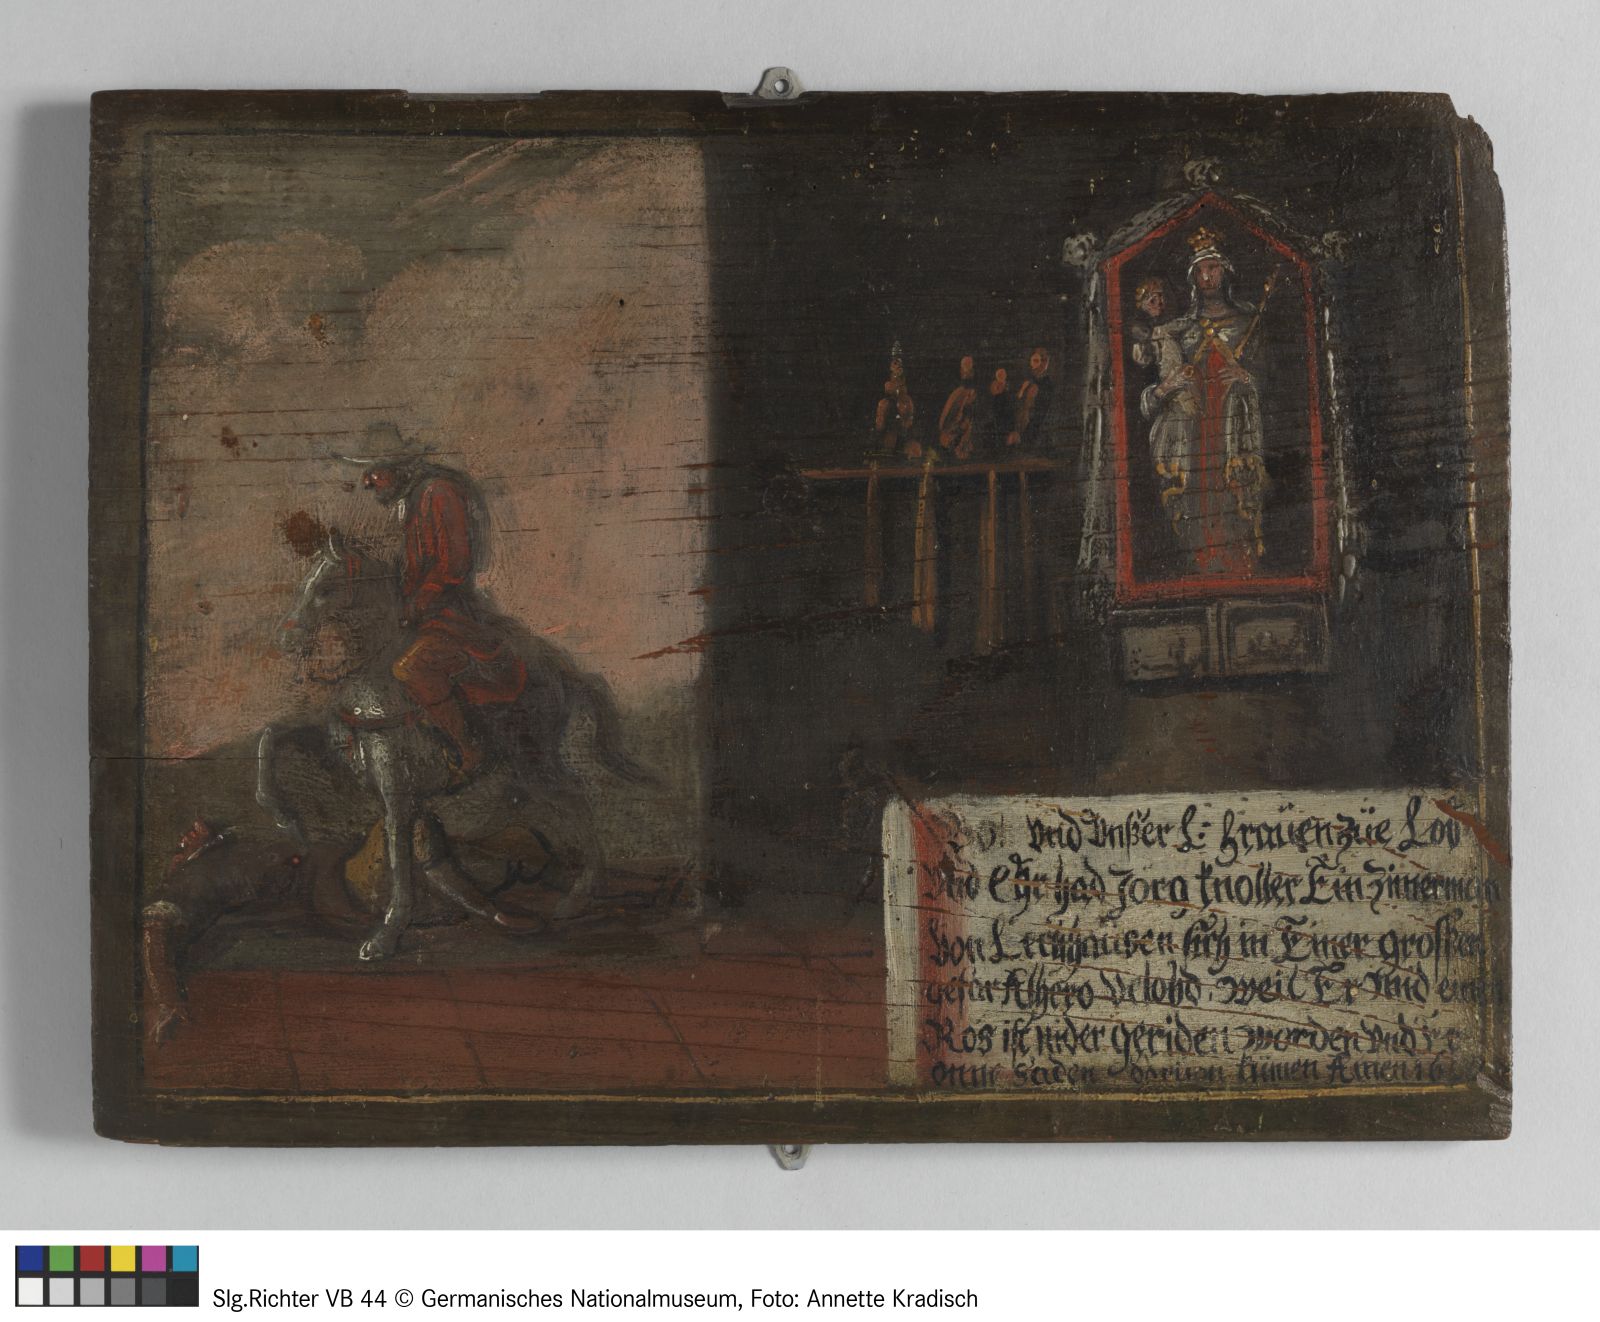 und Unser L: Frauen züe Lob
Und Ehr had Jorg knoller Ein Zimerman
Von sich in Einer grossen
gefar Alhero Velobd. weil Er Und
Ros ist nider geriden worden Und Er
onne Saden kumen Amen 16
Slg.Richter VB 44 © Germanisches Nationalmuseum, Foto: Annette Kradisch